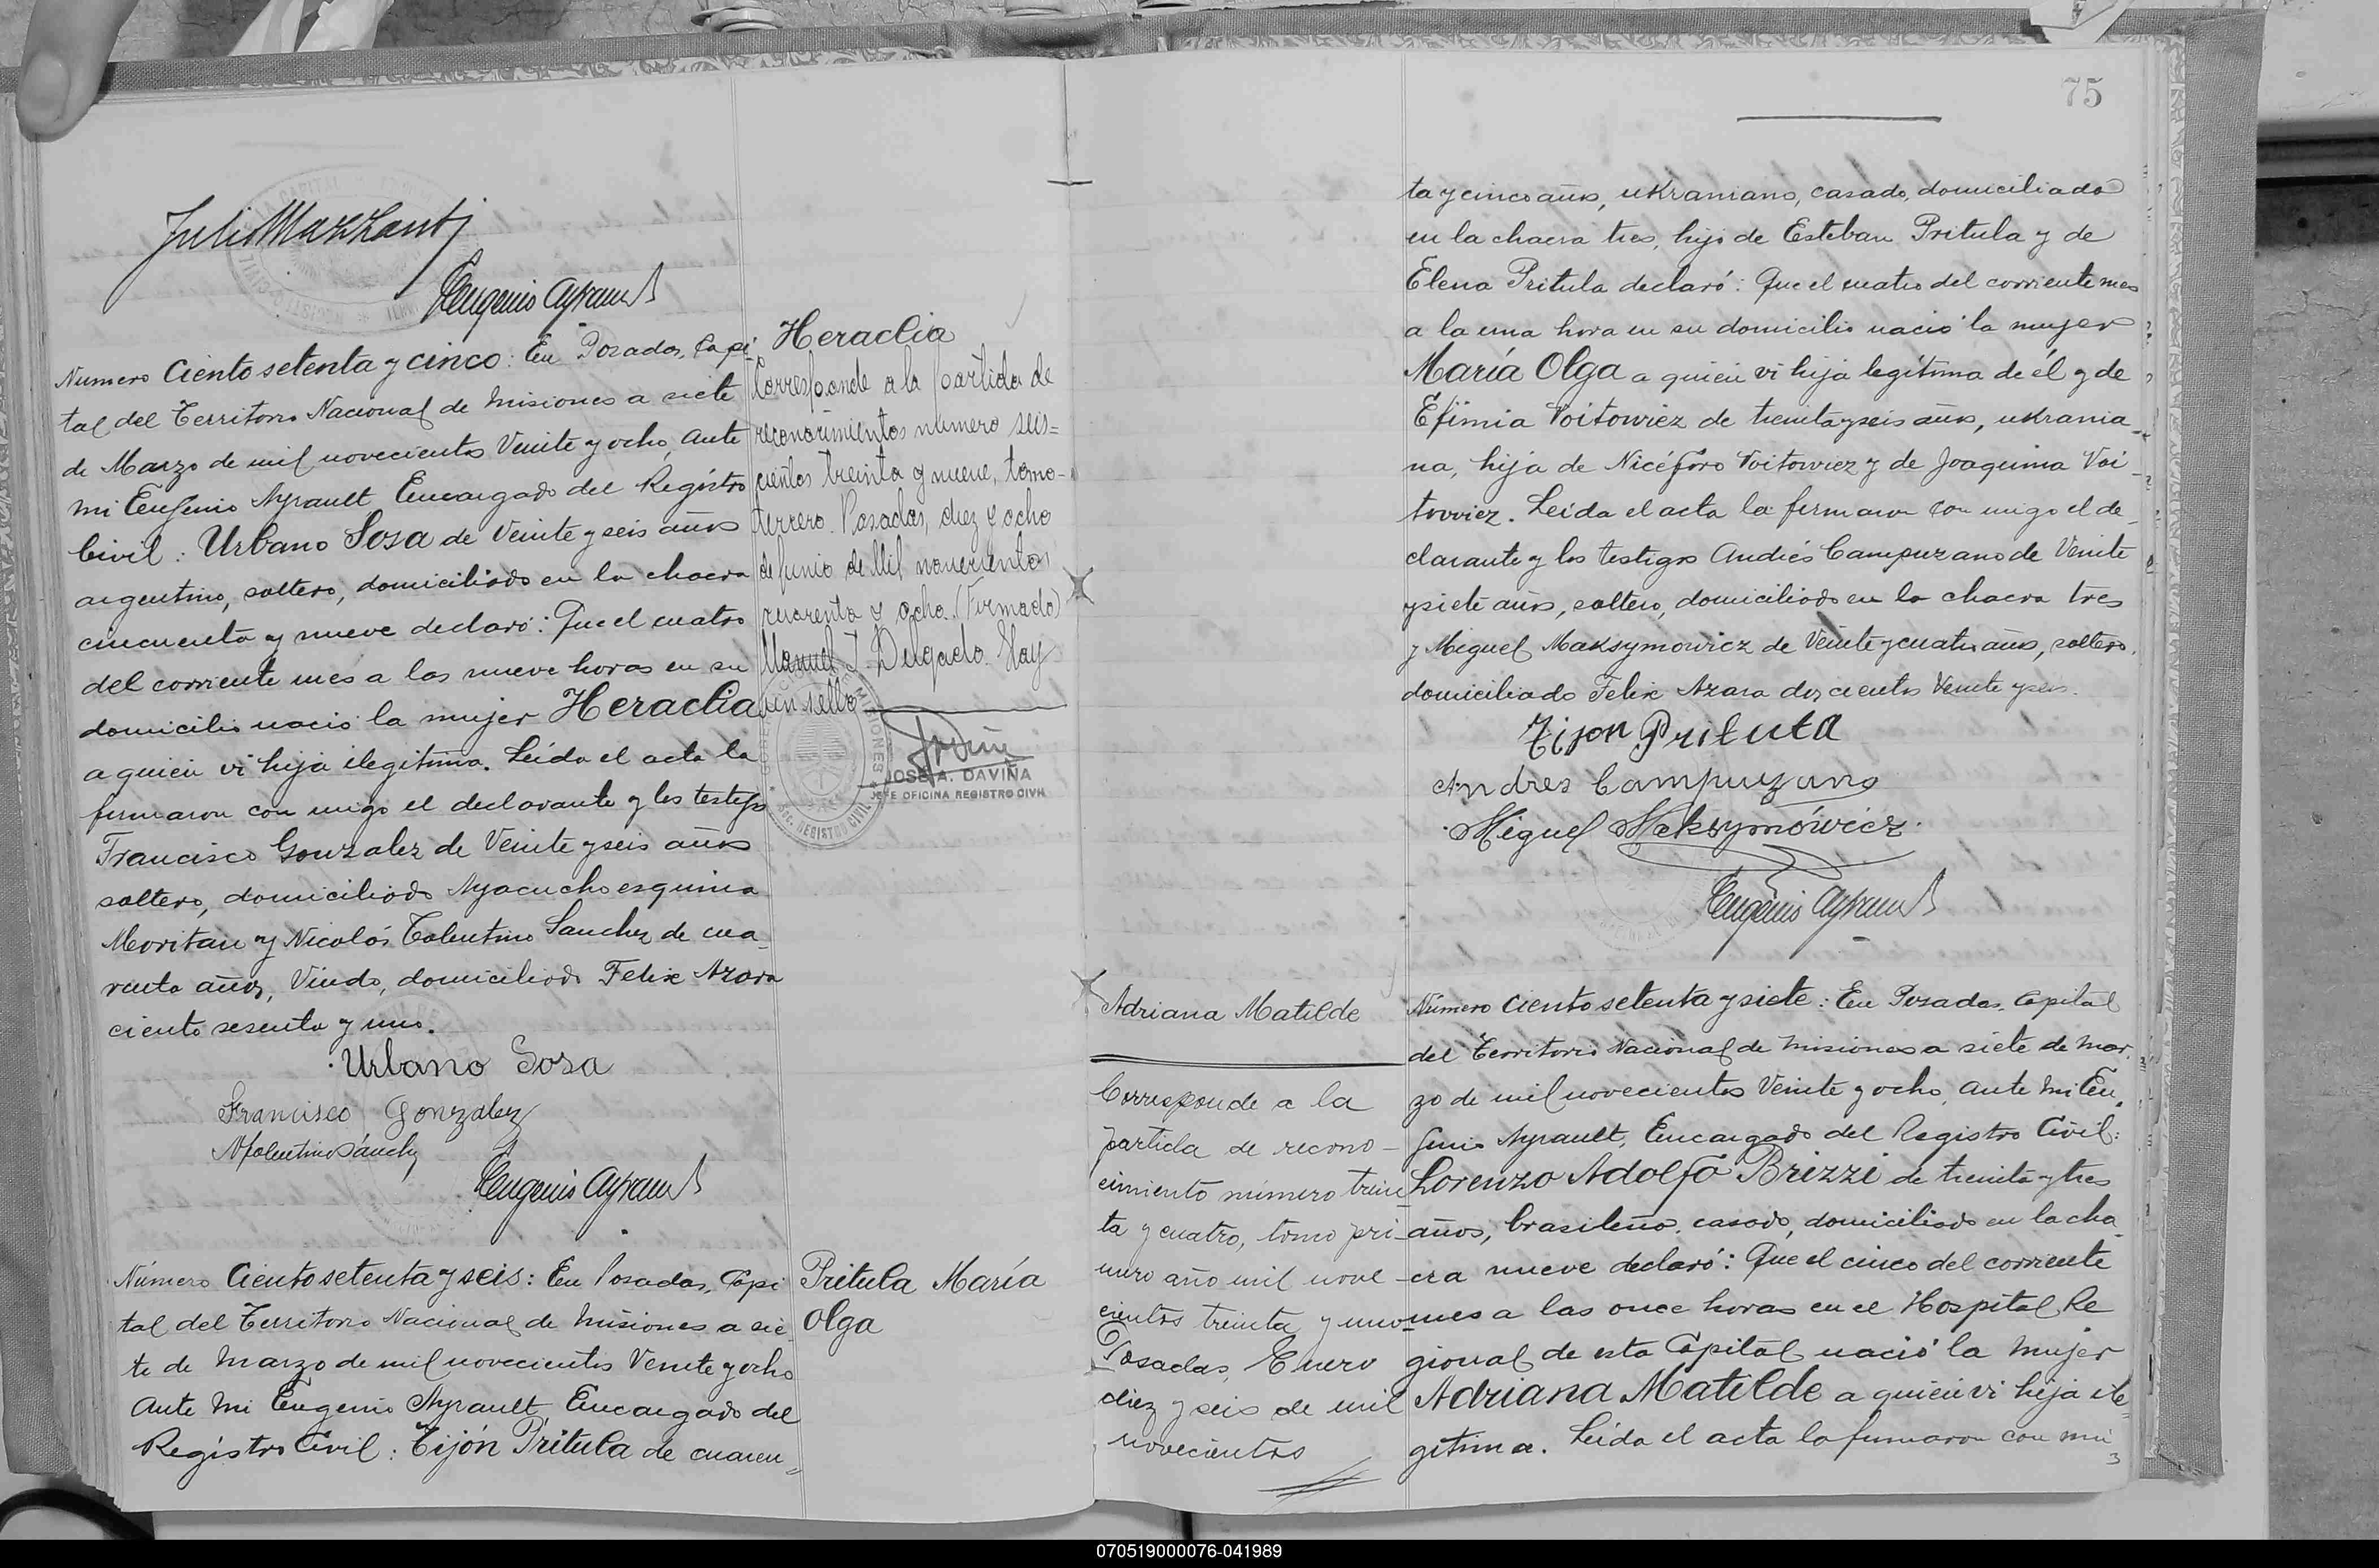 Julio Mazzanti
Eugenio Ayrault
Número Ciento setenta y cinco: En Posadas, Capi-
tal del Territorio Nacional de Misiones a siete
de Marzo de mil novecientos Veinte y ocho, ante
mi Eugenio Ayrault Encargado del Registro
Civil: Urbano Sosa de Veinte y seis años
argentino, soltero, domiciliado en la chacra
cincuenta y nueve declaró: Que el cuatro
del corriente mes a las nueve horas en su
domicilio nació la mujer Heraclia
a quien vi hija ilegítima. Leída el acta la
firmaron con migo el declarante y los testigos
Francisco Gonzalez de Veinte y seis años
soltero, domiciliado Ayacucho esquina
Moritan y Nicolás Tolentino Sanchez de cua-
renta años, Viudo, domiciliado Felix Azara
ciento sesenta y uno.
Urbano Sosa
Francisco Gonzalez
N Tolentino Sánchez
Eugenio Ayrault
Número Ciento setenta y seis: En Posadas, Capi
tal del Territorio Nacional de Misiones a sie
te de Marzo de mil novecientos Veinte y ocho
ante mi Eugenio Ayrault Encargado del
Registro Civil: Tijón Pritula de cuaren-
Heraclia
Corresponde a la partida de
reconocimientos número seis=
cientos treinta y nueve, tomo-
tercero. Posadas, diez y ocho
de Junio de Mil novecientos
cuarenta y ocho. (Firmado)
Manuel J. Delgado. Hay
un sello
JOSE A. DAVIÑA
JEFE OFICINA REGISTRO CIVIL
Pritula María
Olga
75
ta y cinco años, ukraniano, casado, domiciliado
en la chacra tres, hijo de Esteban Pritula y de
Elena Pritula declaró: Que el cuatro del corriente mes
a la una hora en su domicilio nació la mujer
María Olga a quien vi hija legítima de él y de
Efimia Voitowiez de treinta y seis años, ukrania-
na, hija de Nicéforo Voitowiez y de Joaquina Voi-
towiez. Leída el acta la firmaron con migo el de-
clarante y los testigos Andrés Campuzano de Veinte
y siete años, soltero, domiciliado en la chacra tres
y Miguel Maksymowicz de Veinte y cuatro años, soltero,
domiciliado Felix Azara doscientos Veinte y seis.
Tijon Prituta
Andres Campuzano
Miguel Maksymówicz
Eugenio Ayrault
Adriana Matilde
Corresponde a la
partida de recono-
cimiento número trein
ta y cuatro, tomo pri-
mero año mil nove-
cientos treinta y uno-
Posadas, Enero
diez y seis de mil
novecientos
Número Ciento setenta y siete: En Posadas, Capital
del Territorio Nacional de Misiones a siete de Mar-
zo de mil novecientos Veinte y ocho, ante mi Eu-
genio Ayrault, Encargado del Registro Civil:
Lorenzo Adolfo Brizzi de treinta y tres
años, brasileño, casado, domiciliado en la cha-
cra nueve declaró: Que el cinco del corriente
mes a las once horas en el Hospital Re
gional de esta Capital nació la mujer
Adriana Matilde a quien vi hija ile-
gítima. Leída el acta la firmaron con mi
070519000076-041989